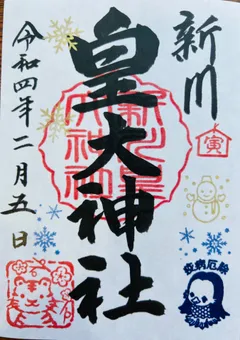 新川
寅
皇大神社
令和四年二月五日
疫病厄除